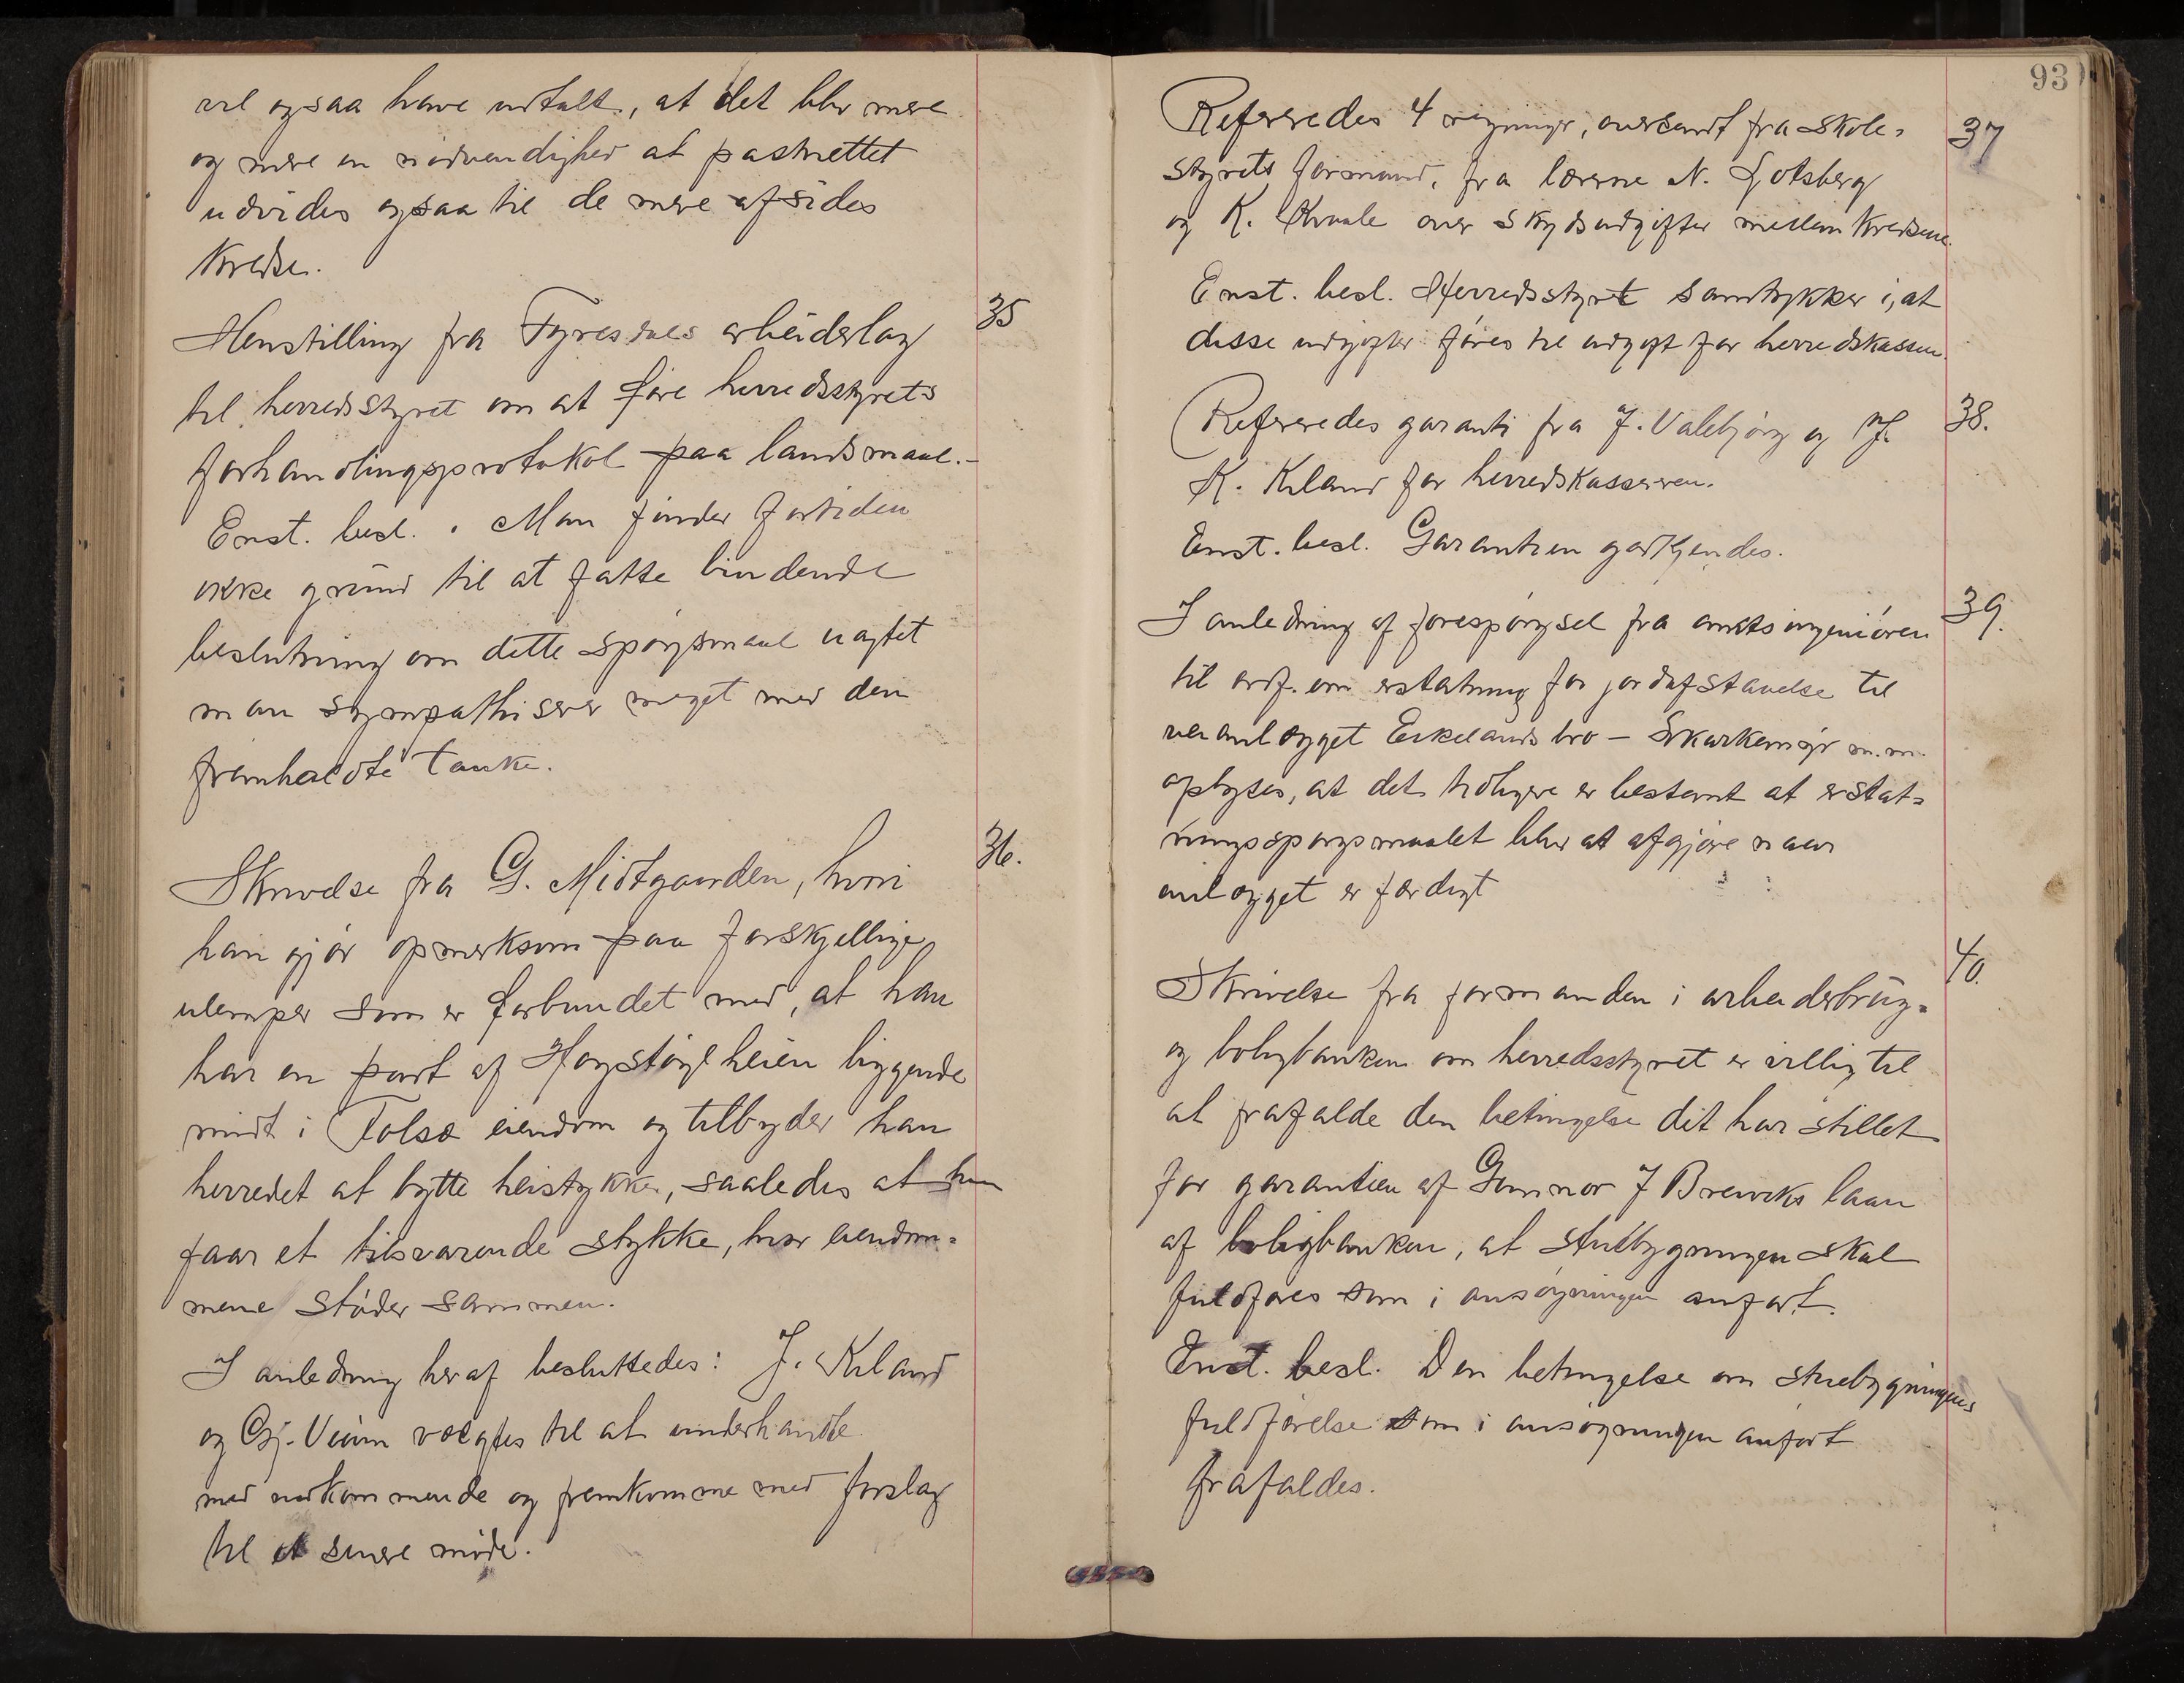 vil ogsaa have udtalt, at det blir mere
og mere en nødvendighed at postnettet
udvides ogsaa til de mere afsides
kredse.
35
Henstilling fra Tyresdals arbeiderlag
til herredsstyret om at føre herredsstyrets
forhandlingsprotokol paa landsmaal.-
Enst. besl. Man finder fortiden
ikke grund til at fatte bindende
beslutning om dette spørgsmaal uagtet
man sympathiserer meget med den
fremholdte tanke.
36.
Skrivelse fra G. Midtgaarden, hvori
han gjør opmerksom paa forskjellige
ulemper som er forbundet med, at han
har en part af Høgstøylheien liggende
midt i Folsæ eiendom og tilbyder han
herredet at bytte heistykke, saaledes at han
faar et tilsvarende stykke, hvor eiendom=
mene støder sammen.
I anledning heraf besluttedes: J. Kiland
og Gj. Veum vælgtes til at underhandle
med vedkommende og fremkomme med forslag
til et senere møde.
93
37
Refereredes 4 regninger, oversendt fra skole=
styrets formand, fra lærerne N.
og K. Kvaale over skydsudgifter mellem kredsene.
Enst. besl. Herredsstyret samtykker i, at
disse udgifter føres til udgift for herredskassen.
38.
Refereredes garanti fra J. Valebjørg og J.
K. Kiland for herredskassereren.
Enst. besl. Garantien godkjendes.
39.
I anledning af forespørgsel fra amtsingeniøren
til ordf. om erstatning for jordafstaaelse til
veianlægget Eikelands bro - m.m.
oplyses, at det tidligere er bestemt at erstat=
ningsspørgsmaalet blir at afgjøre naar
anlægget er færdigt
40.
Skrivelse fra formanden i arbeiderbrug=
og boligbanken om herredsstyret er villig til
at frafalde den betingelse det har stillet
for garantien af Gunnar J laan
af boligbanken, at stuebygningen skal
fuldføres som i ansøgningen anført.
Enst. besl. Den betingelse om stuebygningens
fuldførelse som i ansøgningen anført
frafaldes.